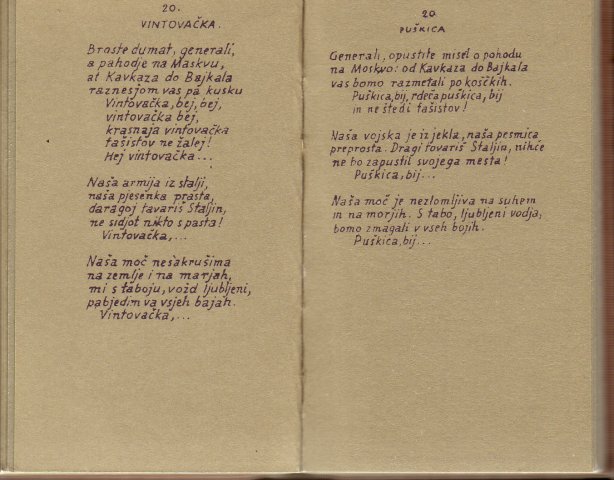 20.
VINTOVAČKA.
Broste dumat, generali,
a pahodje na Maskvu,
at Kavkaza do Bajkala
raznesjom vas pa kusku
Vintovačka, bej, bej,
vintovačka bej,
krasnaja vintovačka
fašistov ne žalej!
Hej vintovačka...
Naša armija iz stalji,
naša pjesenka prasta,
daragoj tavariš Staljin,
ne sidjot nikto s pasta!
Vintovačka,...
Naša moč nesakrušima
na zemlje i na marjah,
mi s taboju, vožd ljubljeni,
pabjedim va vsjeh bajah.
Vintovačka,...
20
PUŠKICA
Generali, opustite misel o pohodu
na Moskvo: od Kavkaza do Bajkala
vas bomo razmetali po koščkih.
Puškica, bij, rdeča puškica, bij
in ne štedi fašistov!
Naša vojska je iz jekla, naša pesmica
preprosta. Dragi tovariš Staljin, nihče
ne bo zapustil svojega mesta!
Puškica, bij...
Naša moč je nezlomljiva na suhem
in na morjih. S tabo, ljubljeni vodja,
bomo zmagali v vseh bojih.
Puškica, bij...